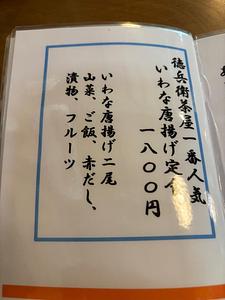 徳兵衛茶屋一番人気
いわな唐揚げ定食
一八００円
いわな唐揚げ二尾
山菜、ご飯、赤だし、
漬物、フルーツ